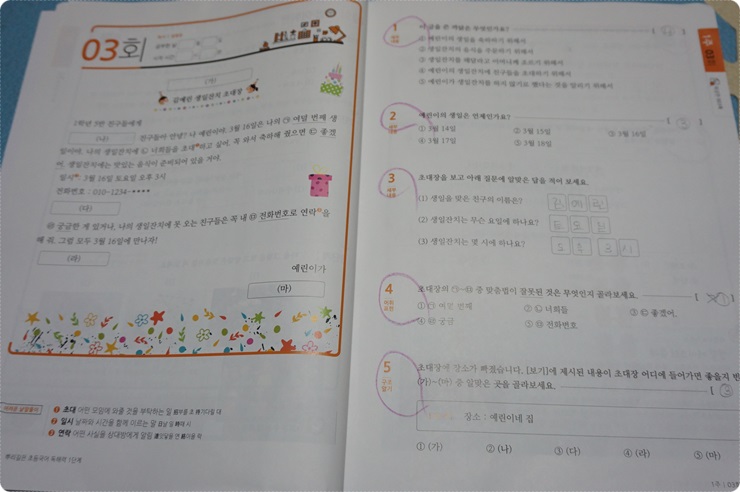 03회
(가)
김예린 생일잔치 초대장
1학년 3반 친구들에게
(나) 친구들아 안녕? 나 예린이야. 3월 16일은 나의 ㉠ 여덜 번째 생
일이야. 나의 생일잔치에 ㉡ 너희들을 초대하고 싶어. 꼭 와서 축하해 줬으면 ㉢ 좋겠
어. 생일잔치에는 맛있는 음식이 준비되어 있을 거야.
일시 3월 16일 토요일 오후 3시
전화번호 : 010-1234-****
(다)
㉣ 궁금한 게 있거나, 나의 생일잔치에 못 오는 친구들은 꼭 내 ㉤ 전화번호로 연락을
해 줘. 그럼 모두 3월 16일에 만나자!
(라)
예린이가
(마)
1 초대 어떤 모임에 와줄 것을 부탁하는 말
2 일시 날짜와 시간을 함께 이르는 말
3 연락 어떤 사실을 상대방에게 알림
뿌리깊은 초등국어 독해력 1단계
1 이 글을 쓴 까닭은 무엇인가요?
① 예린이의 생일을 축하하기 위해서
② 생일잔치의 음식을 주문하기 위해서
③ 생일잔치를 해달라고 어머니께 조르기 위해서
④ 예린이의 생일잔치에 친구들을 초대하기 위해서
⑤ 생일잔치를 하지 않기로 했다는 것을 알리기 위해서
2 예린이의 생일은 언제인가요?
① 3월 14일 ② 3월 15일 ③ 3월 16일
④ 3월 17일 ⑤ 3월 18일
3 초대장을 보고 아래 질문에 알맞은 답을 적어 보세요.
(1) 생일을 맞은 친구의 이름은?
(2) 생일잔치는 무슨 요일에 하나요? 토요일
(3) 생일잔치는 몇 시에 하나요? 오후 3시
4 초대장의 ㉠~㉤ 중 맞춤법이 잘못된 것은 무엇인지 골라보세요.
① ㉠ 여덜 번째 ② ㉡ 너희들 ③ ㉢ 좋겠어.
④ ㉣ 궁금 ⑤ ㉤ 전화번호
5 초대장에 장소가 빠졌습니다. [보기]에 제시된 내용이 초대장 어디에 들어가면 좋을지 번
(가)~(마) 중 알맞은 곳을 골라보세요.
장소 : 예린이네 집
① (가) ② (나) ③ (다) ④ (라) ⑤ (마)